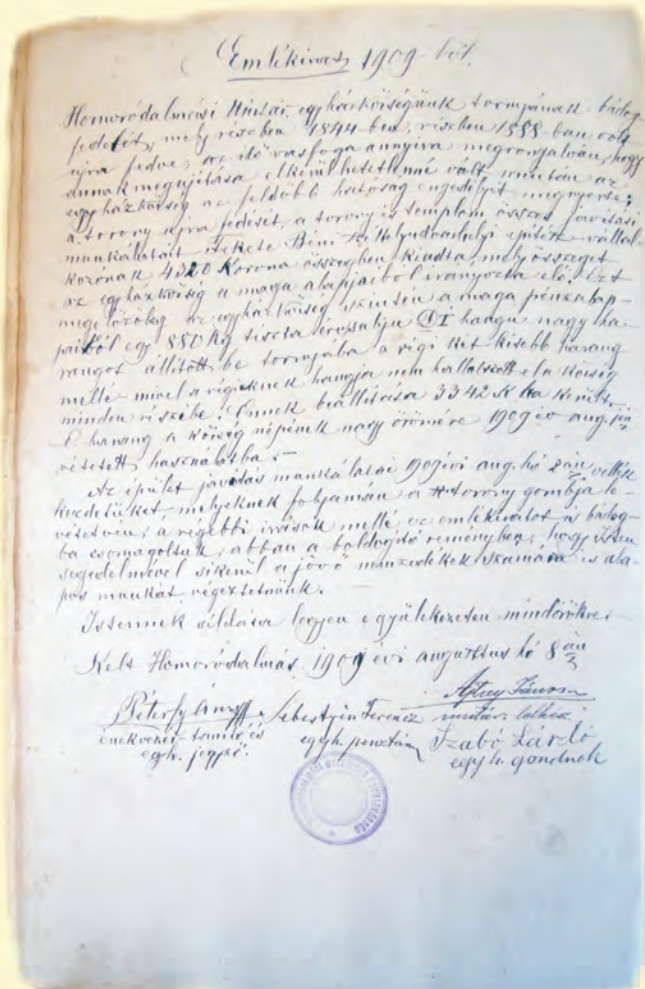 Emlékirat 1909-ből.
Homoródalmási Unitár. egyházközségünk tornyának bádog
fedelét, mely részben 1844-ben, részben 1888-ban volt
újra fedve, az idő vasfoga annyira megrongálván, hogy
annak megujitása elkerülhetetlenné vált miután az
egyházközség az feldőbb hatóság engedélyét megnyerte:
a torony ujra fedését, a torony és templom összes javitási
munkálatait Fekete Béni Székelyudvarhelyi épitész vállal-
kozónak 4320 Korona összegben kiadta, mely összeget
az egyházközség a maga alapjaiból irányozta elő. Ezt
megelőzőleg az egyházközség szintén a maga pénzalap-
jaiból egy 880 kg tiszta érczsulyu hangu nagy ha-
rangot állitott be tornyába a régi két kisebb harang
mellé mivel a régieknek hangja nem hallatszott el a község
minden részébe. Ennek beállitása 3342 K ba került.
E harang a község népének nagy örömére 1909 év aug.
vétetett használatba. –
Az épület javitás munkálatai 1909 évi aug. hó 2án vették
kezdetüket, melyeknek folyamán a torony gombja le-
vétetvén, a régebbi irások mellé, ez emlékiratot is bádog-
ba csomagoltuk, abban a boldogitó reményben, hogy Isten
segedelmével sikerül a jövő nemzedékek számára is ala-
pos munkát végeztetnünk.
Istennek áldása legyen e gyülekezeten mindörökre –
Kelt Homoródalmás, 1909 évi augusztus hó 8 án
Ajtay János
Péterfy Sebestyén Ferencz unitár. lelkész
énekvezér tanitó és egyh. pénztárn. Szabó László
egyh. jegyző. egyh. gondnok